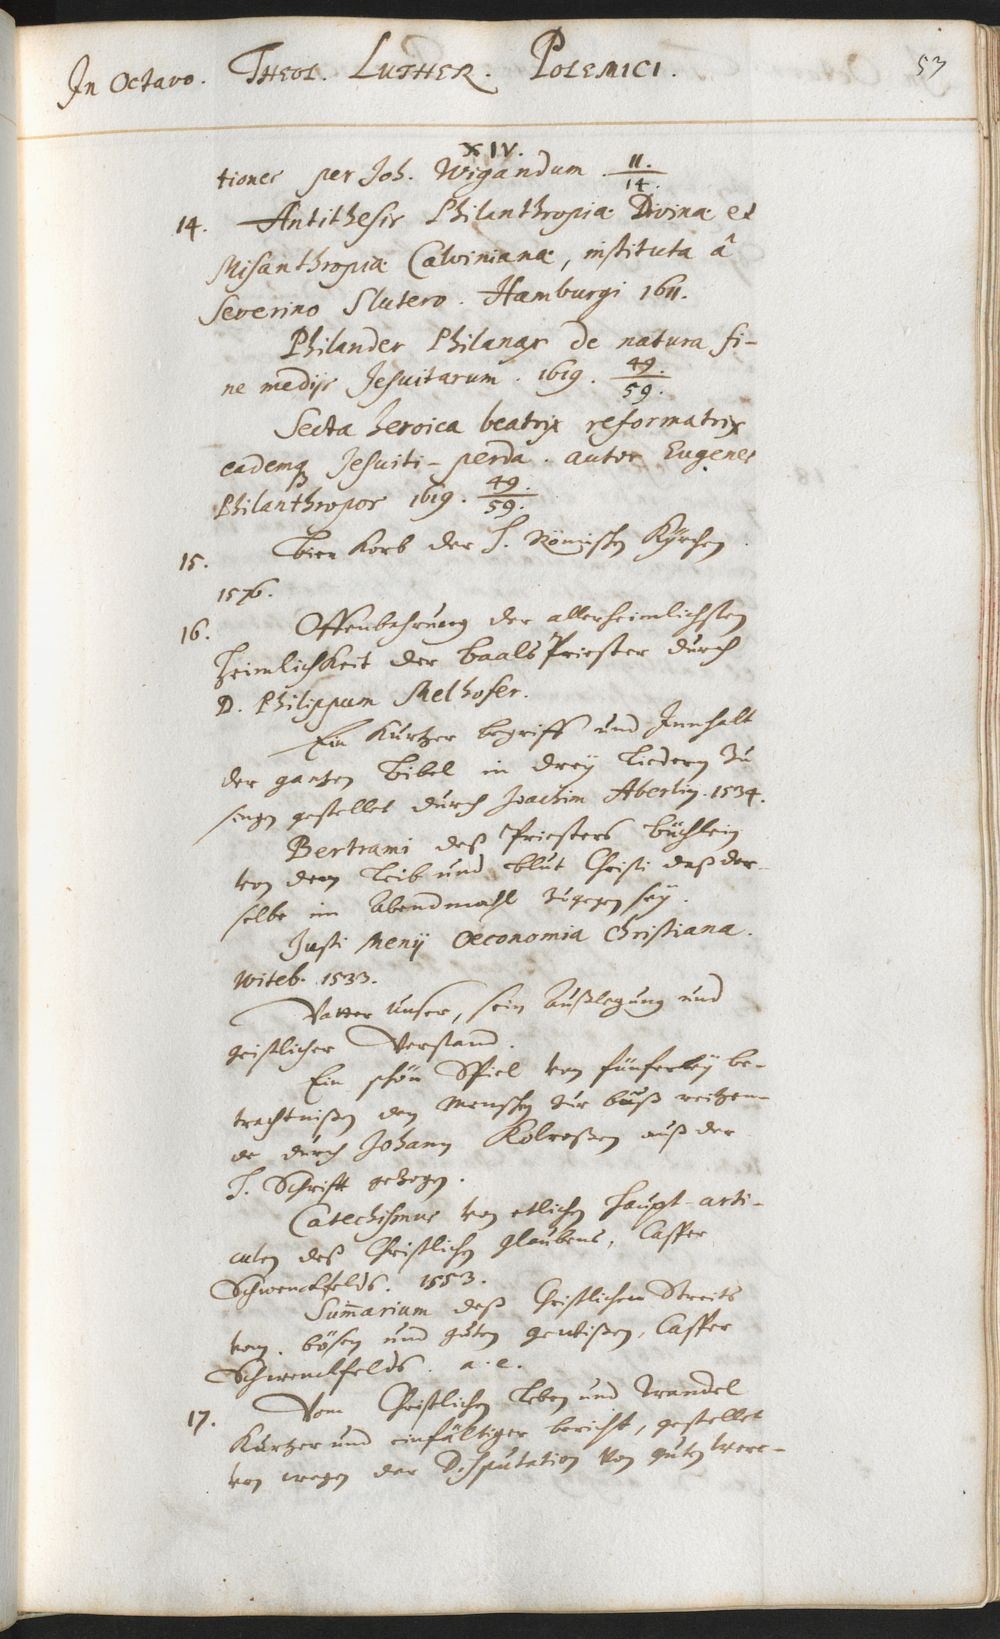 In Octavo. THEOL. LUTHER. POLEMICI.
53
XIV.
tiones per Joh. Wigandum. 11./14.
14. Antithesis Philanthropiæ Divinæ et
Misanthropiæ Calvinianæ, instituta â
Severino Slutero. Hamburgi 1611.
Philander Philanax de natura fi-
ne medijs Jesuitarum. 1619. 49./59.
Secta heroica beatrix reformatrix
eademq Jesuiti-perda. autor Eugenes
Philanthropos 1619. 49./59.
15. Bien Korb der H. Römischen Kyrchen.
1576.
16. Offenbahrung der allerheimlichsten
Heimlichkeit der Baals Priester durch
D. Philippum Melhofer.
Ein Kurtzer begriff und Innhalt
der gantzen Bibel in drey Liedern zu
singen gestellet durch Joachim Aberlin. 1534.
Bertrami deß Priesters büchlein
von dem Leib und Blut Christi daß der-
selbe im Abendmahl zugegen sey.
Justi Menij Oeconomia Christiana.
Witeb. 1533.
Vatter Unser, sein Außlegung und
geistlicher Verstand.
Ein schön Spiel von fünferley be-
trachtnißen den Menschen zur buß reitzen-
de durch Johann Kolroßen auß der
H. Schrifft gezogen.
Catechismus von etlichen Haupt-arti-
culen deß Christlichen glaubens, Casper
Schwenckfelds. 1553.
Sum̄arium deß Geistlichen Streits
vom bösen und guten gewißen, Casper
Schwenckfelds. a. e.
17. Vom Christlichen Leben und Wandel
Kurtzer und einfältiger bericht, gestellet
von wegen der Disputation von guten Werc-